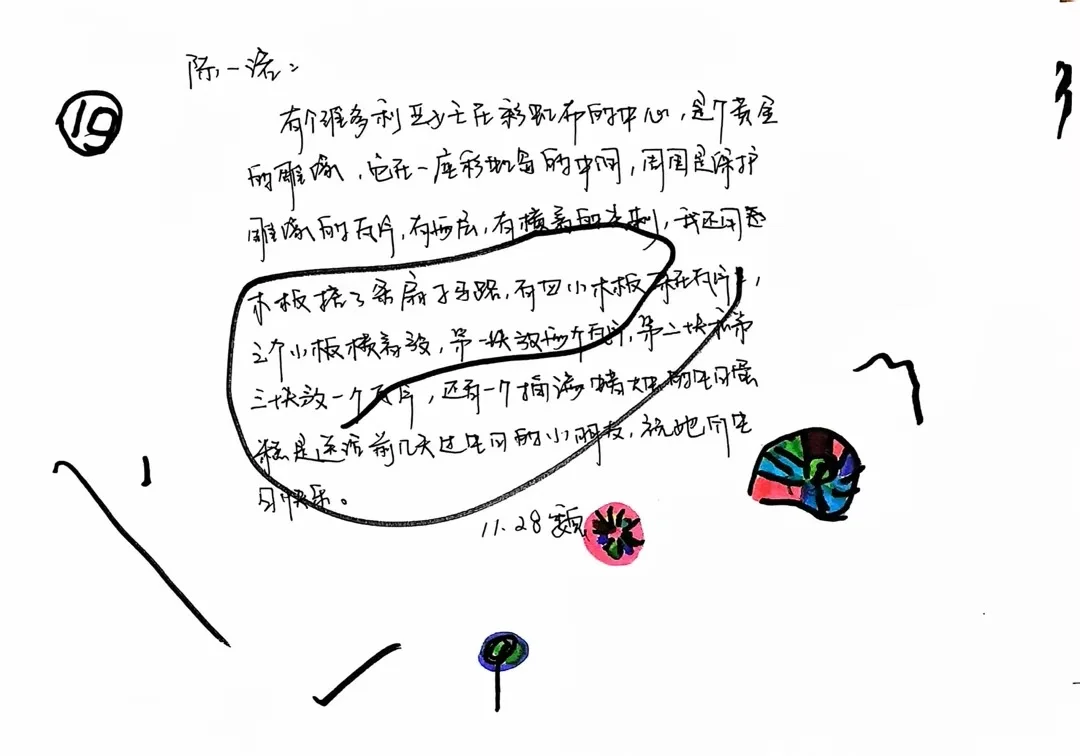 19
陈一诺：
有个维多利亚女王在彩虹布的中心，是个黄金
的雕像，它在一座彩虹岛的中间，周围是保护
雕像的瓦片，有两层，有横着的，我还用
木板搭了条扇子马路，有四小木板
三个小板横着放，第一块放两个瓦片，第二块和第
三块放一个瓦片，还有一个的生日蛋
糕是送给前几天过生日的小朋友，祝她们生
日快乐。
11.28